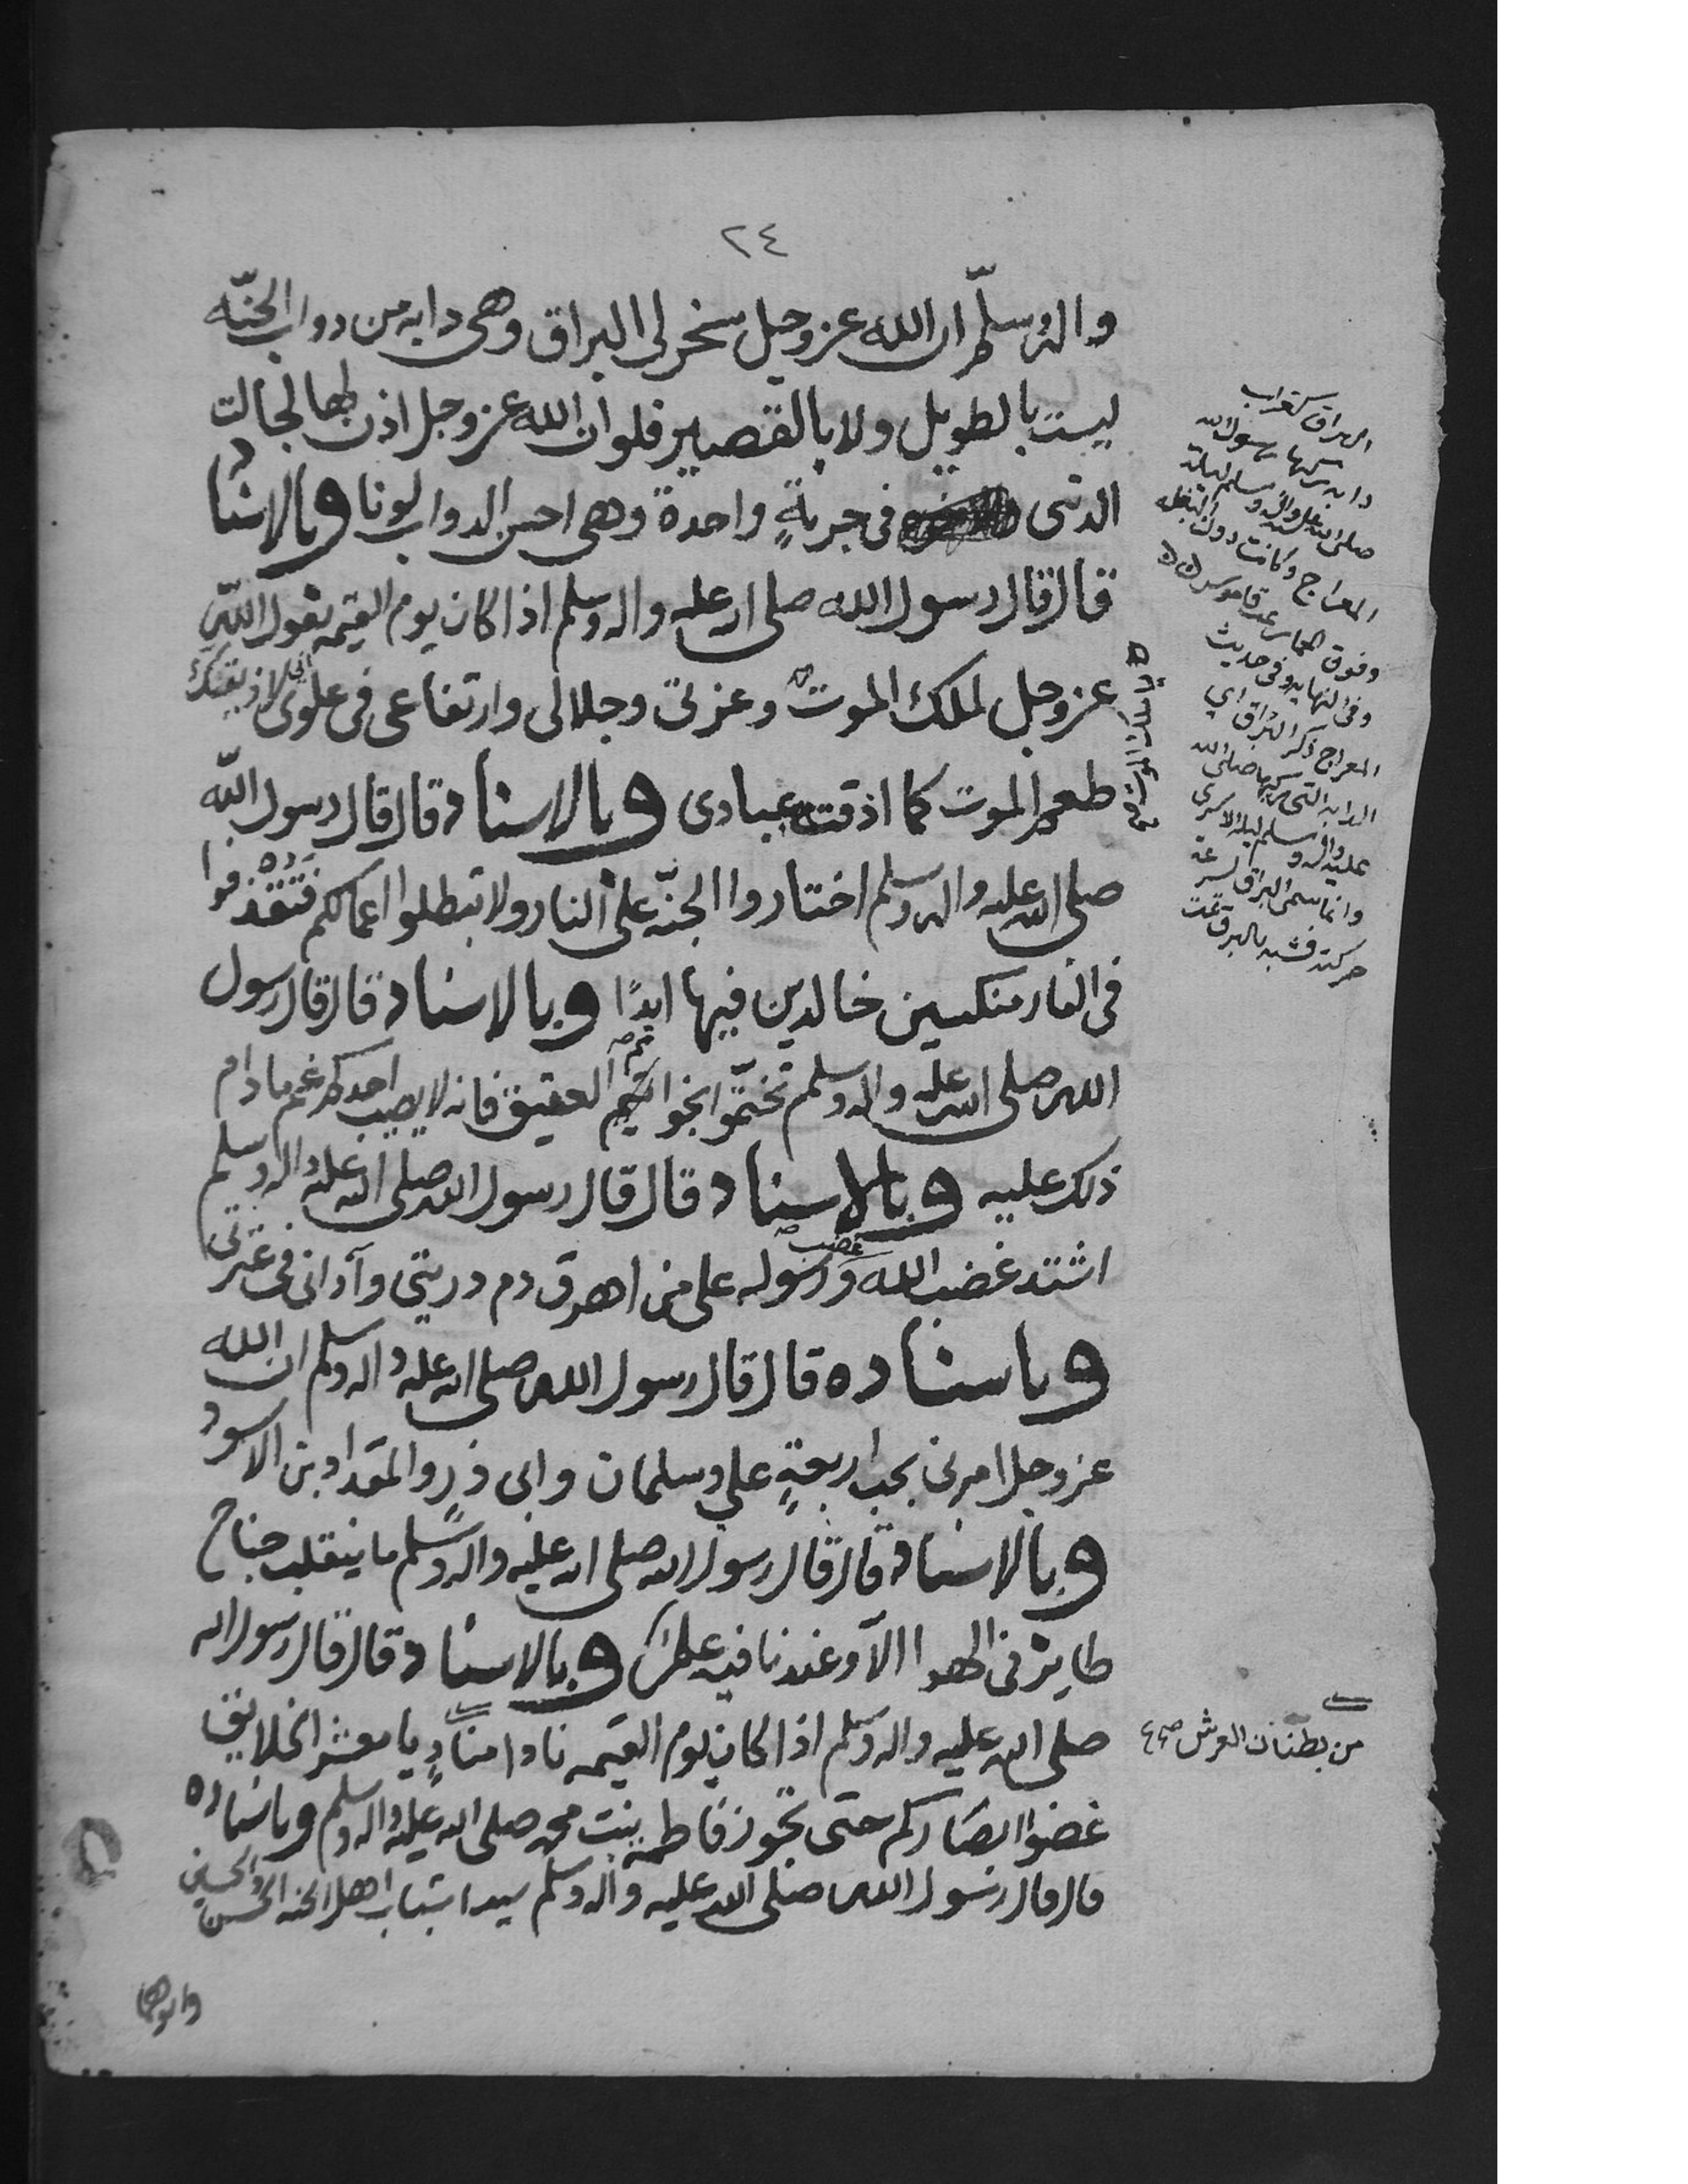 ٢٤
واله وسلم ان الله عز وجل سخر لى البراق وهى دابه من دواب الجنّه
ليست بالطويل ولا بالقصير فلو ان الله عز وجل اذن لها لجالت
الدنى فى جريةٍ واحدة وهى احسن الدواب لونا وبالاسناد
قال قال رسول الله صلى الله عليه واله وسلم اذا كان يوم القيمه يقول الله
عز وجل لملك الموت وعزتى وجلالى وارتفاعى فى علوى لاذيقنك
طعم الموت كما اذقت عبادى وبالاسناد قال قال رسول الله
صلى الله عليه واله وسلم اختاروا الجنّه على النار ولا تبطلوا اعمالكم فتقذفوا
فى النار منكسين خالدين فيها ابدًا وبالاسناد قال قال رسول
الله صلى الله عليه واله وسلم تختّموا بخواتيم العقيق فانه لا يصيب احدكم غم ما دام
ذلك عليه وبالاسناد قال قال رسول الله صلى الله عليه واله وسلم
اشتد غضب الله وغضب رسوله على من اهرق دم ذريتى وآذانى فى عترتى
وباسناده قال قال رسول الله صلى الله عليه واله وسلم ان الله
عز وجل امرنى بحب اربعةٍ علي وسلمان وابى ذرٍ والمقداد بن الاسود
وبالاسناد قال قال رسول الله صلى الله عليه واله وسلم ما ينقلب جناح
طاير فى الهوا الاّ وعندنا فيه علم وبالاسناد قال قال رسول الله
صلى الله عليه واله وسلم اذا كان يوم القيمه نادا منادٍ يا معشر الخلايق
غضوا ابصاركم حتى تجوز فاطمه بنت محمد صلى الله عليه واله وسلم وباسناده
قال قال رسول الله صلى الله عليه واله وسلم سيدا شباب اهل الجنه الحسن والحسين
وابوهما
البراق كغراب
دابه يركبها رسول الله
صلى الله عليه واله وسلم ليلة
المعراج وكانت دون البغله
وفوق الحمار قاموس
وفى النهايه وفى حديث
المعراج ذكر البراق اي
الدابه التى ركبها صلى الله
عليه واله وسلم ليلة الاسرى
وانما سمى البراق لسرعة
حركته فشبه بالبرق تمت
يا ملك الموت
من بطنان العرش